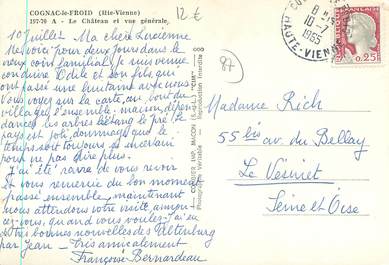 COGNAC-le-FROID (Hte-Vienne)
197-70 A - Le Château et vue générale
12 €
87
10 Juillet. Ma chère Lucienne
Me voici pour deux jours dans le
vieux coin familial, je suis venue
conduire Odile et son fils qui
ont passé une huitaine avec nous
Vous voyez sur la carte, au bout du
village l'ensemble : maison, dépen
dances les arbres l'étang le pré Le
pays est joli, dommage que le
temps soit toujours si incertain
pour ne pas dire plus.
J'ai été ravie de vous revoir
et vous remercie du bon moment
passé ensemble, maintenant
nous attendons votre visite, annon-
cée, quand vous voulez. J'ai eu
de très bonnes nouvelles des Viltenburg
par Jean - Très amicalement
Françoise Bernardeau
COMBIER IMP. MACON (S.-&-L.) "CIM"
Photographie Véritable - Reproduction Interdite
8 H
10-7
1965
HAUTE-VIENNE
0,25
Madame Rich
55 bis av. du Bellay
Le Vésinet
Seine et Oise